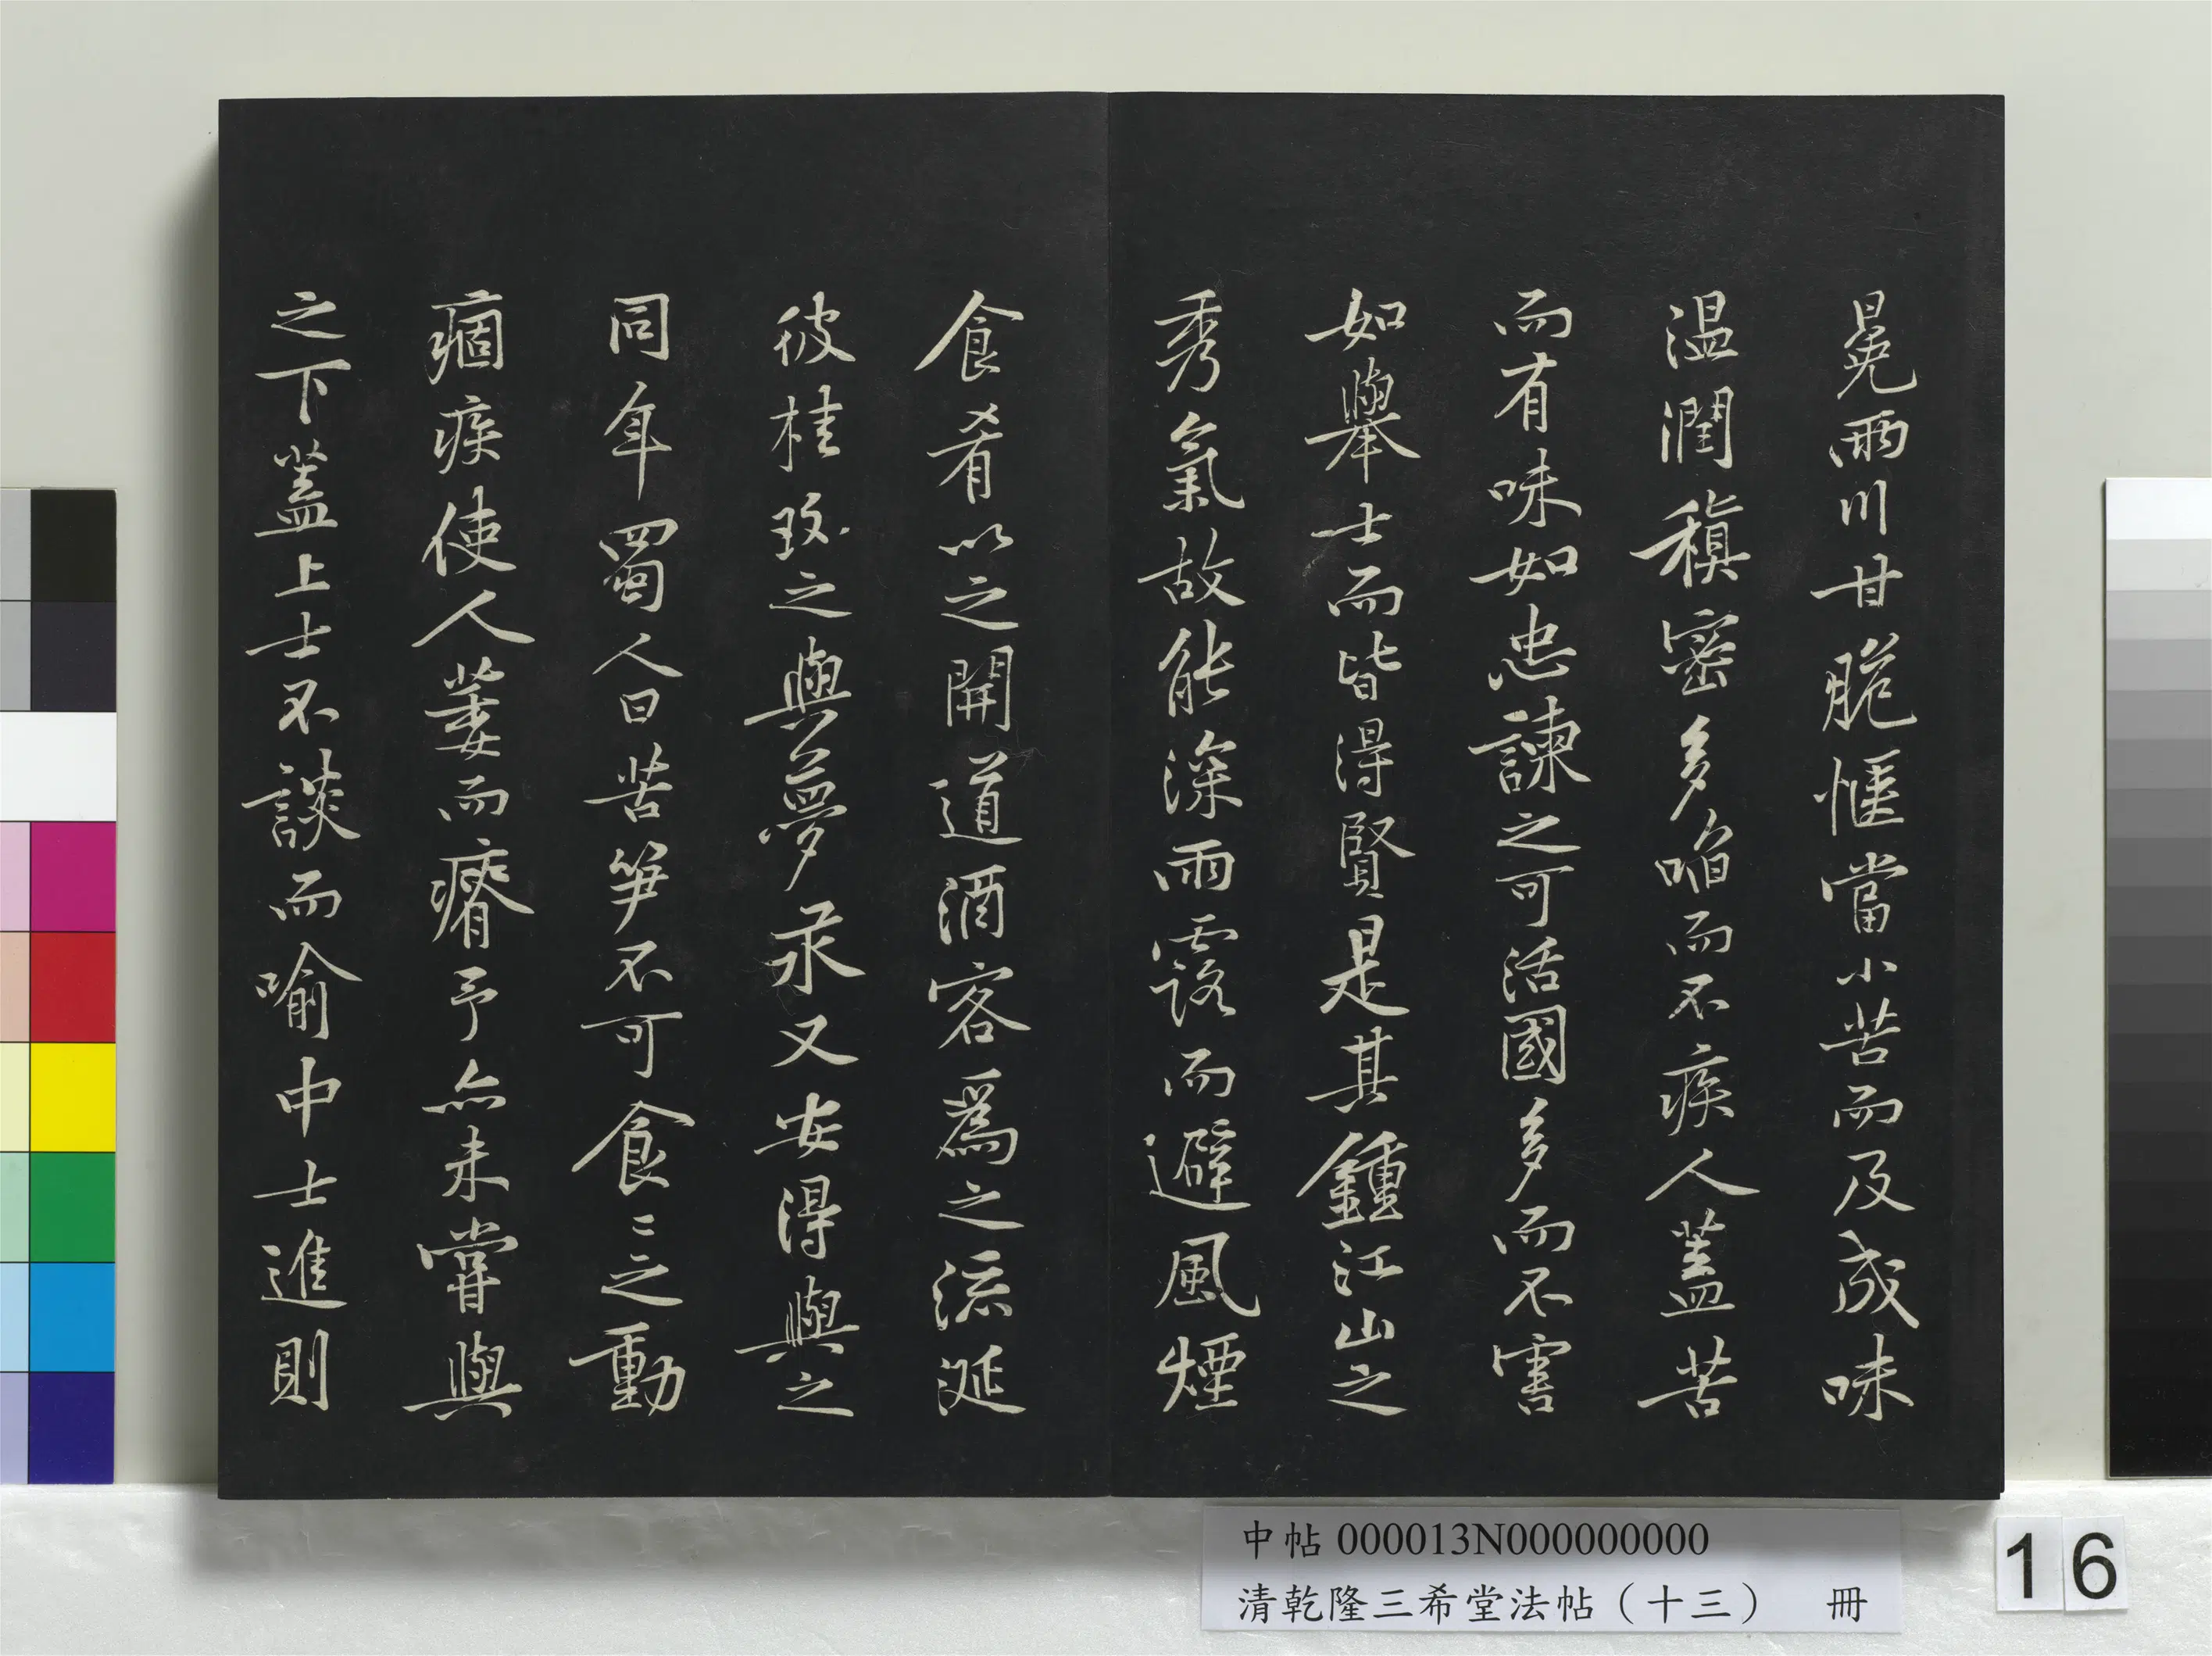 冕兩川甘脆愜當小苦而及成味
温潤稹密多啗而不疾人蓋苦
而有味如忠諫之可活國多而不害
如舉士而皆得賢是其鍾江山之
秀氣故能深雨露而避風煙
食肴以之開道酒客爲之流涎
彼桂玫之與夢汞又安得與之
同年蜀人曰苦笋不可食〻之動
痼疾使人萋而瘠予亦未嘗與
之下蓋上士不談而喻中士進則
中帖 000013N000000000
清乾隆三希堂法帖（十三） 冊
16